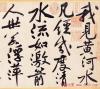 我見黃河水
凡經幾度清
水流如激箭
人世若浮萍